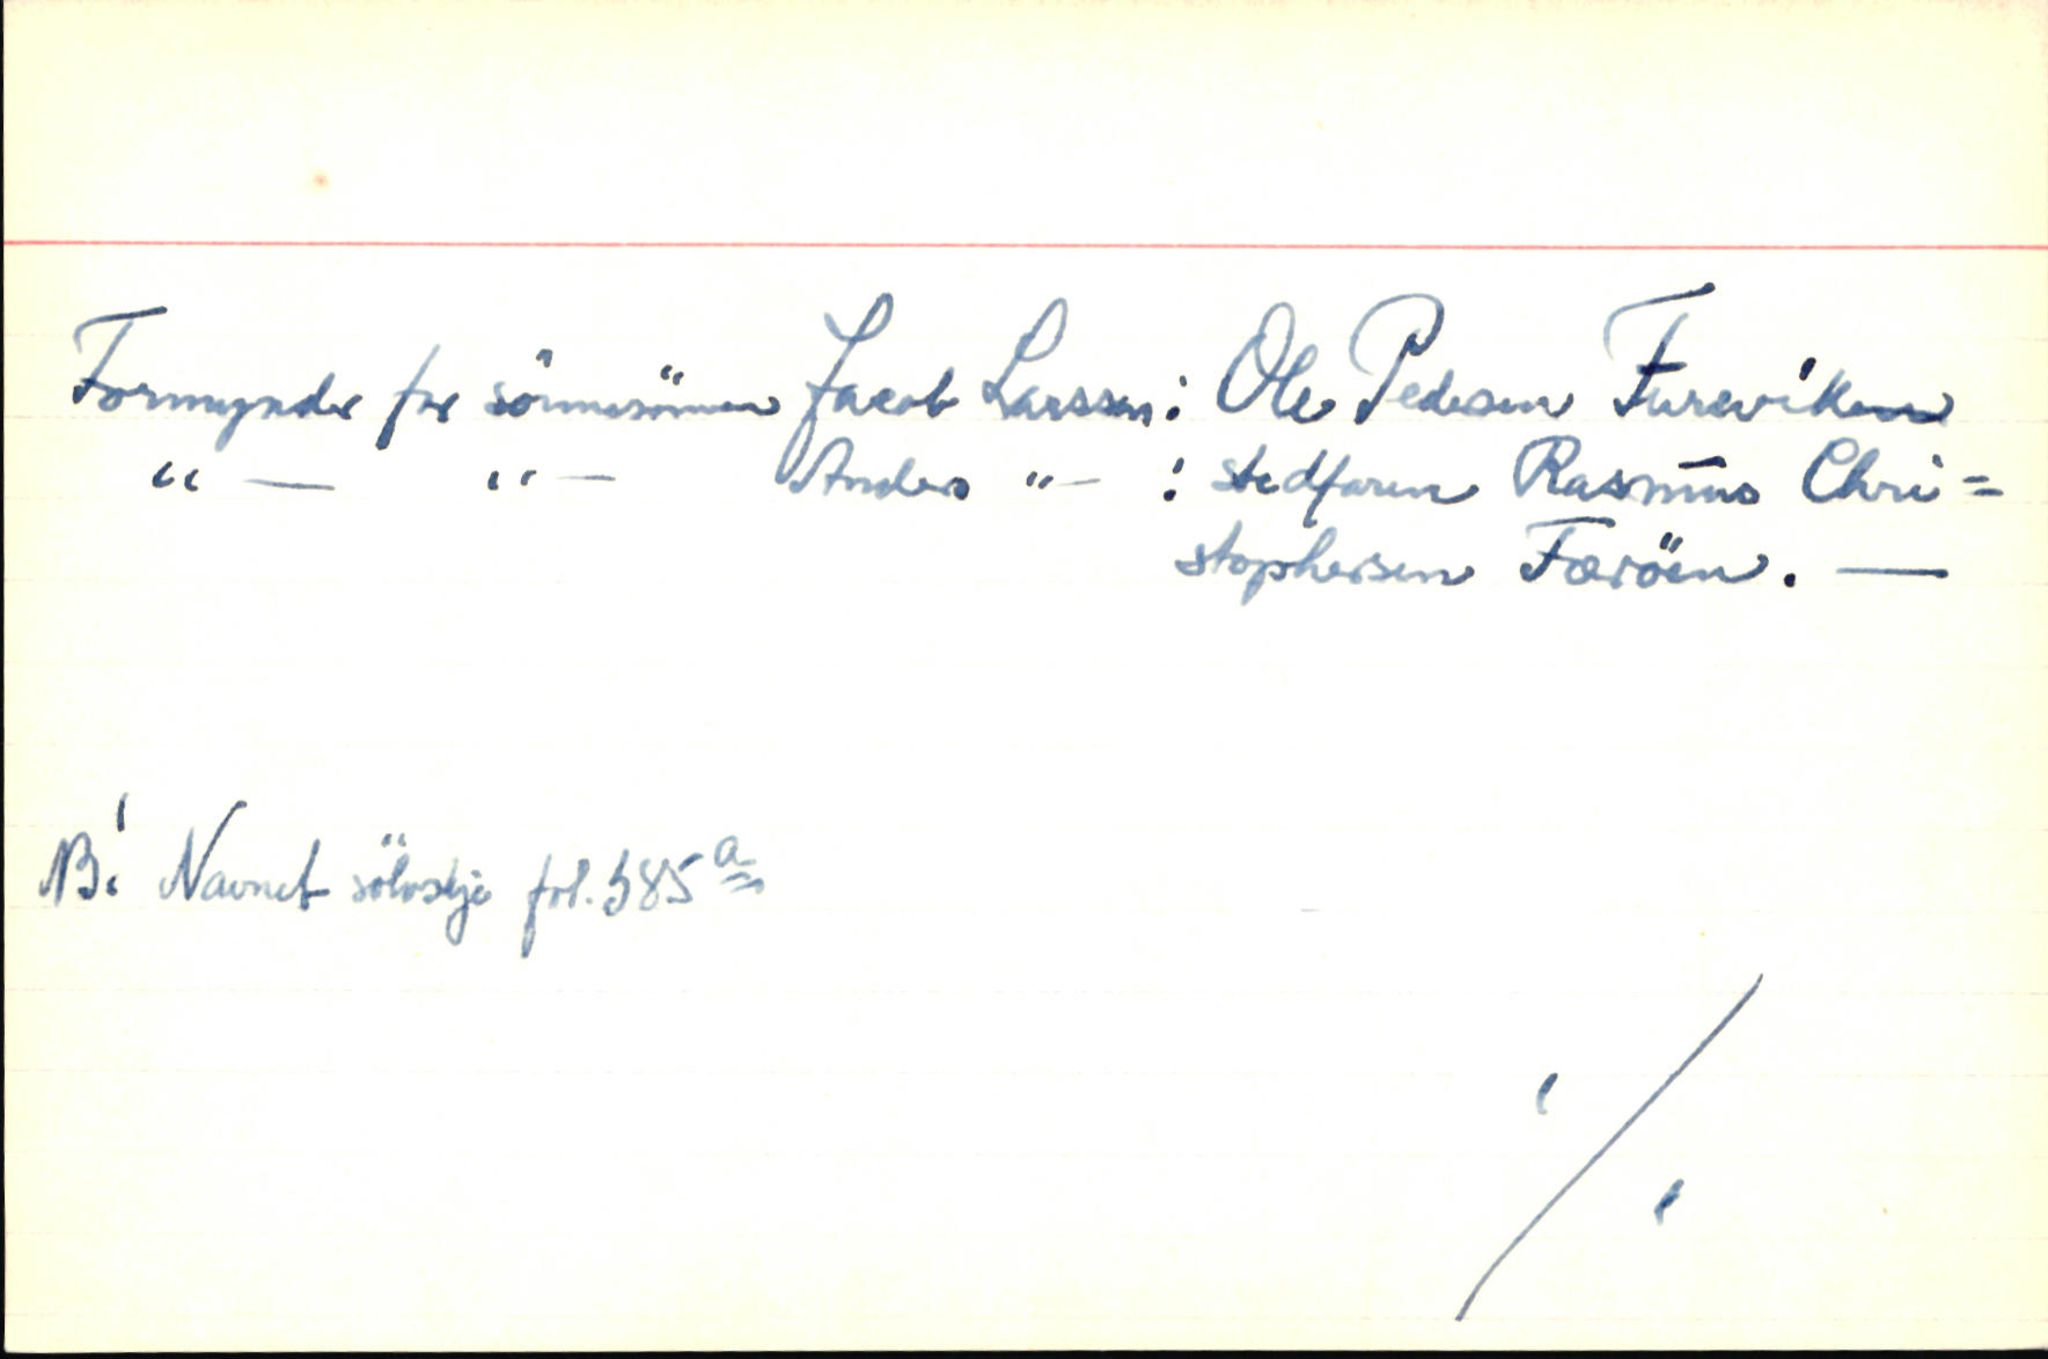 Formynder for sönnesönnen Jacob Larssen: Ole Pedersen Fureviken
"— "— Anders "— : stedfaren Rasmus Chri=
stophersen Færöen. —
NB! Navnet sölvskje fol. 385 a